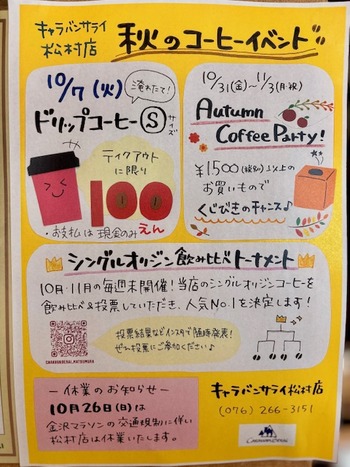 キャラバンサライ
松村店
秋のコーヒーイベント
10/7(火)
淹れたて!
ドリップコーヒーⓈサイズ
テイクアウト
に限り
100
えん
・お支払は現金のみ
10/31(金)~11/3(月・祝)
Autumn
Coffee Party!
¥1500(税別)以上の
お買いもので
くじびきのチャンス♪
シングルオリジン飲み比べトーナメント
10月・11月の毎週末開催!当店のシングルオリジンコーヒーを
飲み比べ&投票していただき、人気No.1を決定します!
投票結果などインスタで随時発表!
ぜひ投票にご参加ください♪
CARAVANSERAI_MATSUMURA
ー休業のお知らせー
10月26日(日)は
金沢マラソンの交通規制に伴い
松村店は休業いたします。
キャラバンサライ松村店
(076)266-3151
CARAVANSERAI